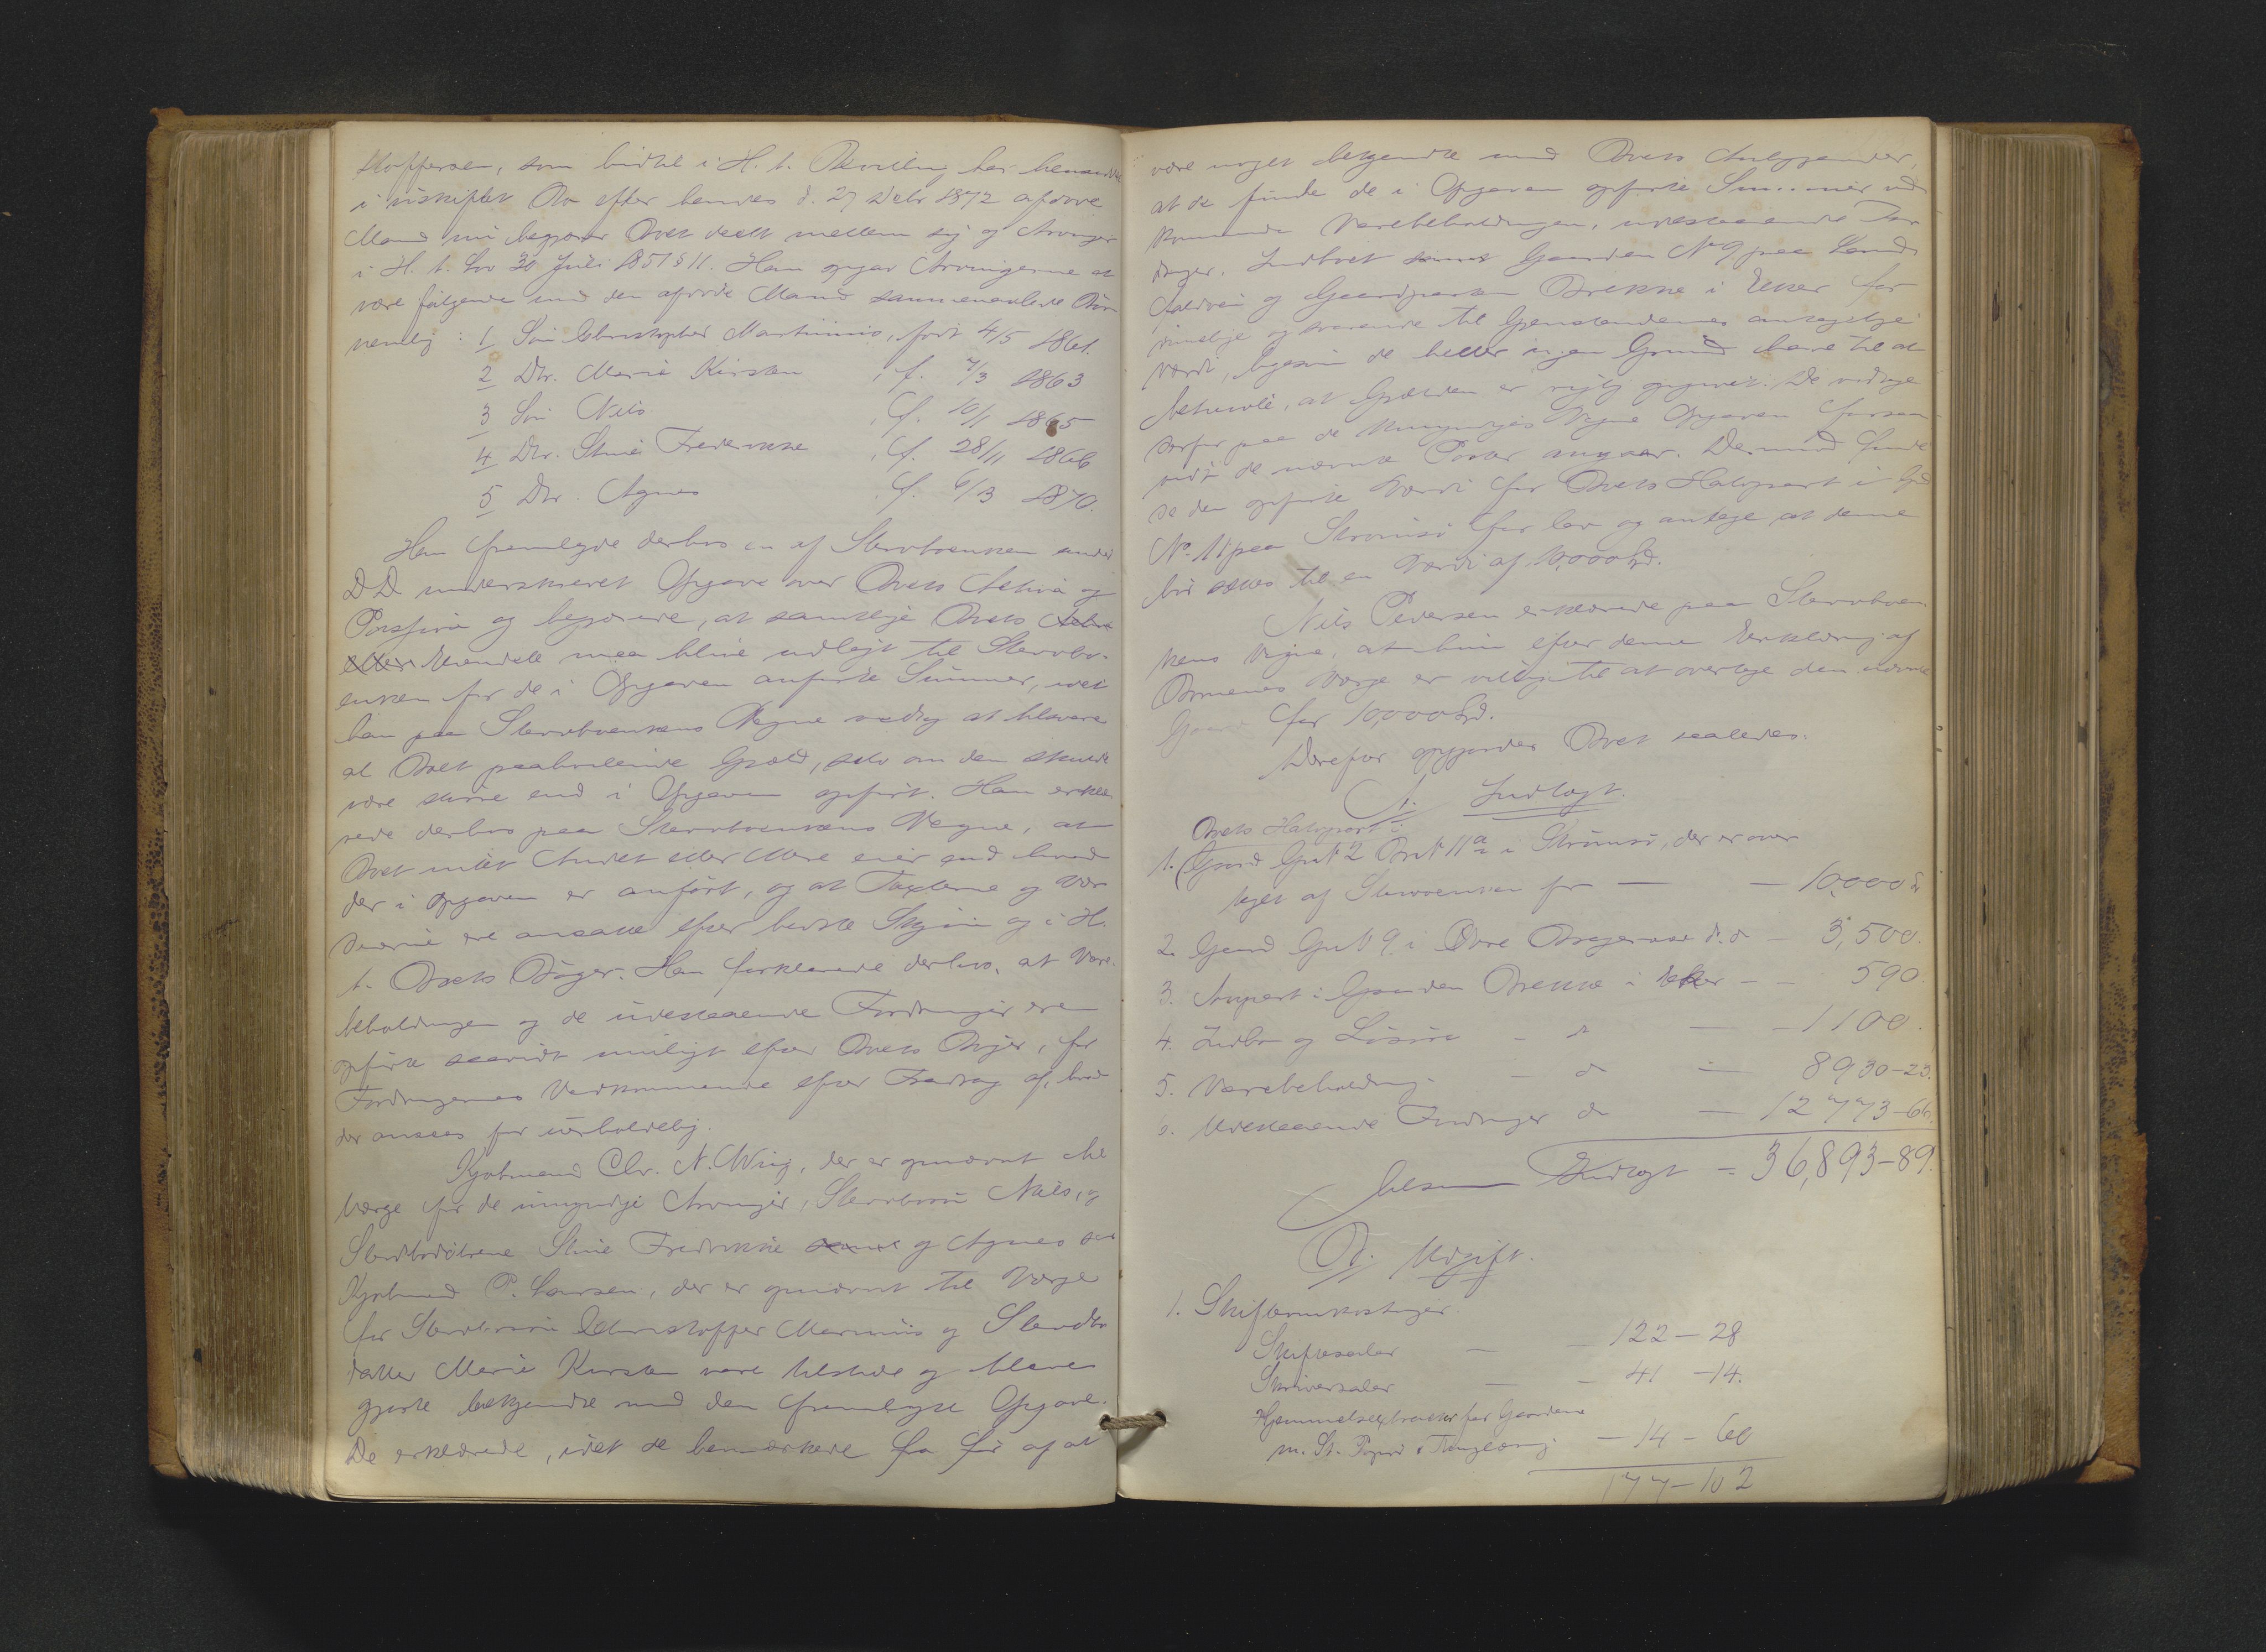 stoffersen, som hidtil i H. t. Bevilling har hensiddet
i uskiftet Bo efter hendes d. 27 Debr 1872 afdøde
Mand nu begjærer Boet deelt mellem sig og Arvinger
i H. t. Lov 30 Juli 1851 § 11. Han opgav Arvingerne at
være følgende med den afdøde Mand sammenavlede Børn
nemlig: 1 Søn Christopher Martinius, født 4/5 1861.
2 Dtr. Marie Kirsten, f. 7/3 1863
3 Søn Nils, f. 10/1 1865
4 Dtr. Stine Fredrikke, f. 28/11 1866
5 Dtr. Agnes, f. 6/3 1870.
Han fremlagde derhos en af Stervboenken under
D. D. underskrevet Opgave over Boets Activa og
Passiva og begjærede, at samtlige Boets
Eiendele maa blive udlagt til Stervbo-
enken for de i Opgaven anførte Summer, idet
han paa Stervboenkens Vegne vedtog at tilsvare
al Boet paahvilende Gjæld, selv om den skulde
være større end i Opgaven opført. Han erklæ-
rede derhos paa Stervboenkens Vegne, at
Boet intet Andet eller Mere eier end hvad
der i Opgaven er anført, og at Taxterne og Vær
dierne ere ansatte efter bedste Skjøn og i H.
t. Boets Bøger. Han forklarede derhos, at Vare-
beholdningen og de udestaaende Fordringer ere
opførte saavidt muligt efter Boets Bøger, for
Fordringernes Vedkommende efter Fradrag af, hvad
der ansees for uerholdelig.
Kjøbmand Chr. N. Wiig, der er opnævnt til
Værge for de umyndige Arvinger, Stervbosøn Nils, og
Stervbodøtrene Stine Fredrikke og Agnes samt
Kjøbmand P. Larsen, der er opnævnt til Værge
for Stervbosøn Christoffer Martinius og Stervbo
datter Marie Kirsten vare tilstede og bleve
gjorte bekjendte med den fremlagte Opgave.
De erklærede, idet de bemærkede fra før af at
være noget bekjendte med Boets Anliggender,
at de finde de i Opgaven opførte Summer ved
kommende Varebeholdningen, udestaaende For
dringer, Indboet samt Gaarden No 9 paa Land
og Gaardparten Brekke i Eker for
rimelige og svarende til Gjenstandenes antagelige
Værdi, ligesom de heller ingen Grund have til at
betvivle, at Gjælden er rigtig opgivet. De vedtage
derfor paa de Umyndiges Vegne Opgaven forsaa-
vidt de nævnte Poster angaar. Derimod finde
de den opførte Værdi for Boets Halvpart i Gd
No. 11 paa Strømsø for lav og antage at denne
bør sættes til en Værdi af 10,000 Spd.
Nils Pedersen erklærede paa Stervboen-
kens Vegne, at hun efter denne Erklæring af
Børnenes Værge er villig til at overtage den nævnte
Gaard for 10,000 Spd.
Derefter opgjordes Boet saaledes:
A. Indtægt.
Boets Halvpart i
1. Gaard Gr. No 2 Br. No 11a i Strømsø, der er over
taget af Stervboenken for — — 10,000
2. Gaard Gr. No 9 i Øvre Bragernæs d.o — 3,500.
3. Anpart i Gaarden Brekke i Eker — — 590.
4. Indbo og Løsøre — do — — 1100.
5. Varebeholdning — do — 8930-23.
6. Udestaaende Fordringer do — 12773-66.
Tilsammen Indtægt = 36,893-89.
B. Udgift.
1. Skifteomkostninger.
Skiftesalær — — 122 — 28
Skriversalær — — 41 — 14.
Hjemmelsextracter for Gaardene
m. St. Papir & Thinglæsning. — 14 — 60
177 — 102